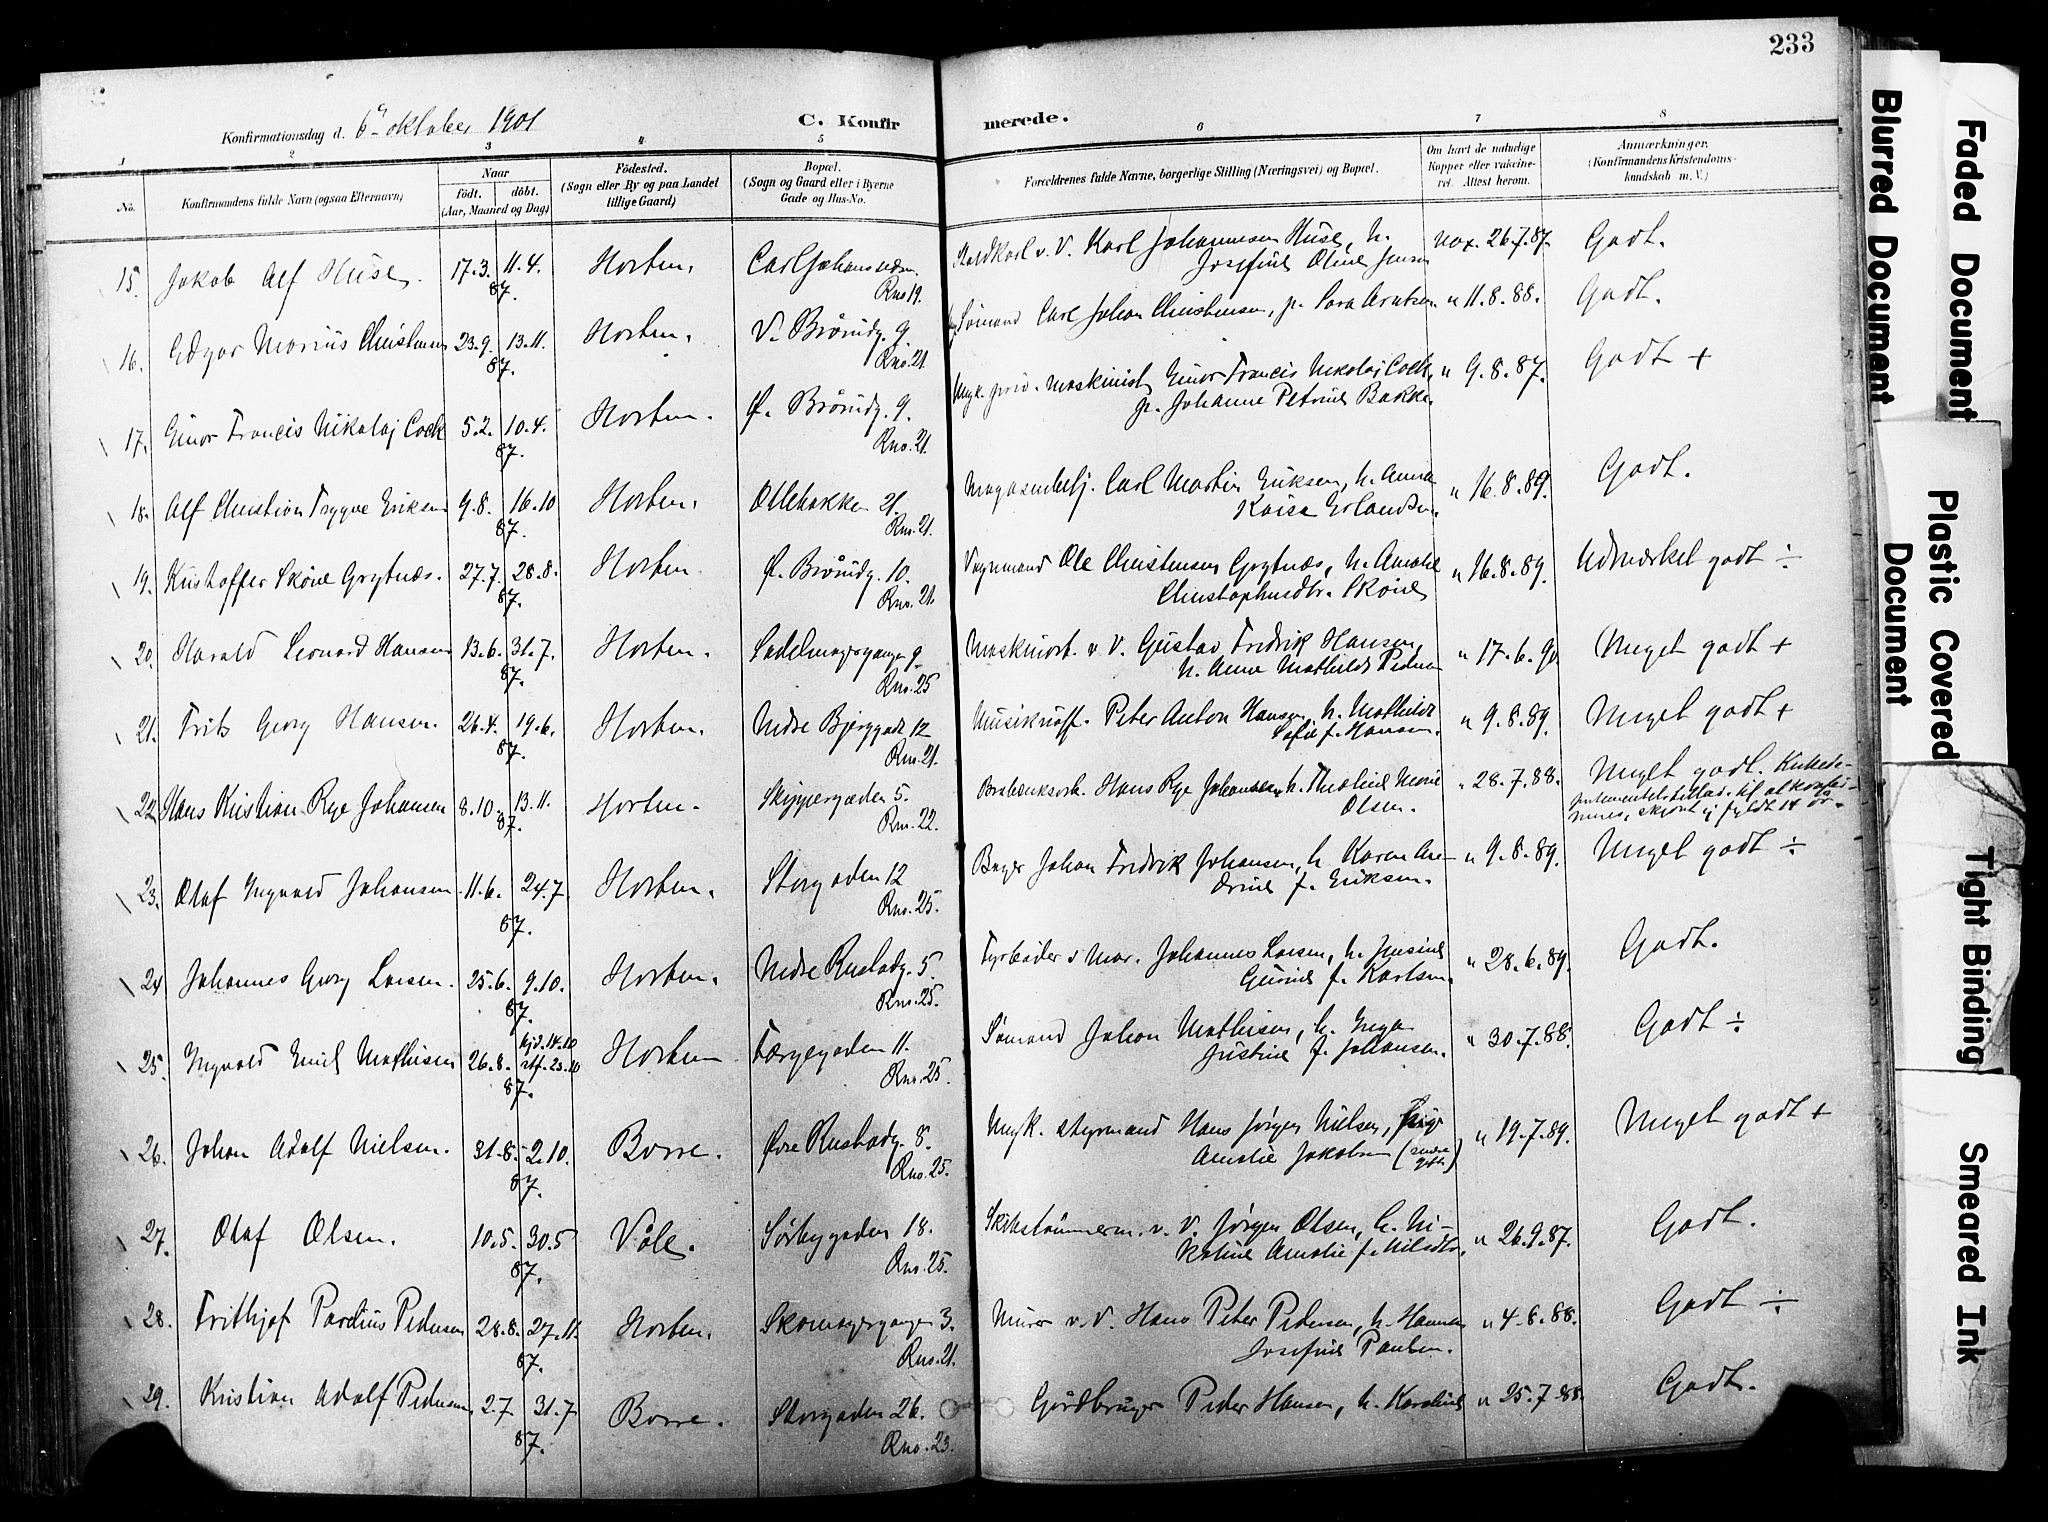 233
Konfirmationsdag d. 6te oktober 1901
C. Konfirmerede.
1 2 3 4 5 6 7 8
No.
Konfirmandens fulde Navn (ogsaa Efternavn)
Naar
født. døbt.
(Aar, Maaned og Dag)
Fødested.
(Sogn eller By og paa Landet
tillige Gaard)
Bopæl.
(Sogn og Gaard eller i Byerne
Gade og Hus-No.
Forældrenes fulde Navne, borgerlige Stilling (Næringsvei) og Bopæl.
Om havt de naturlige
Kopper eller vaccine-
ret. Attest herom.
Anmærkninger.
(Konfirmandens Kristendoms-
kundskab m. V.)
15. Jakob Alf Huse. 17.3. 11.4. 87. Horten. Rno 19. Karl Johannesen Huse, h. vax. 26.7.87. Godt.
Josefine Oline Jensen
16. Edgar Marius Christensen 23.9. 13.11. 87. Horten. V. Brårudg. 9. Rno. 21. Sømand Carl Johan Christensen, p. Sara Arntsen " 11.8.88. Godt.
17. Einar Francis Nikolaj Cock 5.2. 10.4. 87. Horten. Ø. Brårudg. 9. Rno. 21. Ungk. priv. maskinist Einar Francis Nikolaj Cock, " 9.8.87. Godt +
p. Johanne Petrine Bakke.
18. Alf Christian Trygve Eriksen 9.8. 16.10 87. Horten. Ollebakken 21. Rno. 21. Magasinbetj. Carl Martin Eriksen, h. Anna " 16.8.89. Godt.
Kaisa Erlandsen.
19. Kristoffer Skøne Grytnæs. 27.7. 28.8. 87. Horten. Ø. Brårudg. 10. Rno. 21. Ole Christensen Grytnæs, h. Amalie " 16.8.89. Udmærket godt ÷
Christophersdtr. Skøne
20. Harald Leonard Hansen 13.6. 31.7. 87. Horten. Sadelmagergangen 9. Rno. 25 Maskinarb. v. V. Gustav Fredrik Hansen, " 17.6.90. Meget godt +
h. Anna Mathilde Pedersen
21. Frits Georg Hansen. 26.4. 19.6. 87. Horten. Nedre Bjerggade 12 Rno. 21. Musikunoff. Peter Anton Hansen, h. Mathilde " 9.8.89. Meget godt +
Sofie f. Hansen.
22. Hans Kristian Rye Johansen 8.10. 13.11. 87. Horten. Skippergaden 5. Rno. 22. Hans Rye Johansen, h. Tholine Marie " 28.7.88. Meget godt. Kirkede-
Olsen. partementets tillad. til at konfir-
meres, skjønt ej fyldt 14 år.
23. Olaf Ingvald Johansen. 11.6. 24.7. 87. Horten. Storgaden 12 Rno. 25. Bager Johan Fredrik Johansen, h. Karen An- " 9.8.89. Meget godt ÷
drine f. Eriksen.
24. Johannes Georg Larsen. 25.6. 9.10. 87. Horten. Nedre Rustadg. 5. Rno. 25. Fyrbøder i Mar. Johannes Larsen, h. Jensine " 28.6.89. Godt.
Gurine f. Karlsen.
25. Ingvald Emil Mathisen 26.8. hjd. 14.10 stf. 23.10 87. Horten. Færgegaden 11. Rno. 25. Sømand Johan Mathisen, h. Inga " 30.7.88. Godt ÷
Justine f. Johansen.
26. Johan Adolf Nielsen. 31.8. 2.10. 87. Borre. Øvre Rustadg. 8. Rno. 25. Ungk. styrmand Hans Jørgen Nielsen, pige " 19.7.89. Meget godt +
Amalie Jakobsen
27. Olaf Olsen. 10.5. 30.5 87. Våle. Sørbygaden 18. Rno. 25. Skibstømmerm. v. V. Jørgen Olsen, h. Ni- " 26.9.87. Godt.
koline Amalie f. Nilsdtr.
28. Frithjof Pardius Pedersen 28.8. 27.11. 87. Horten. Skomagergangen 3. Rno. 21. Murer v. V. Hans Peter Pedersen, h. Hanna " 4.8.88. Godt ÷
Josefine Paulsen.
29. Kristian Adolf Pedersen 2.7. 31.7 87. Borre. Storgaden 26. Rno. 23. Gårdbruger Peder Hansen, h. Karoline " 25.7.88. Godt.
Faded Document
Blurred Document
Plastic Covered
Document
Tight Binding
Smeared Ink